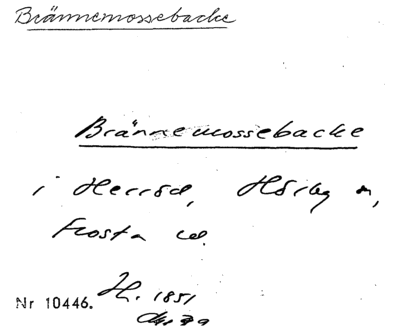 Brännemossebacke
Brännemossebacke
i Herröd, Hörby sn,
Frosta hd.
Nr 10446. H. 1851